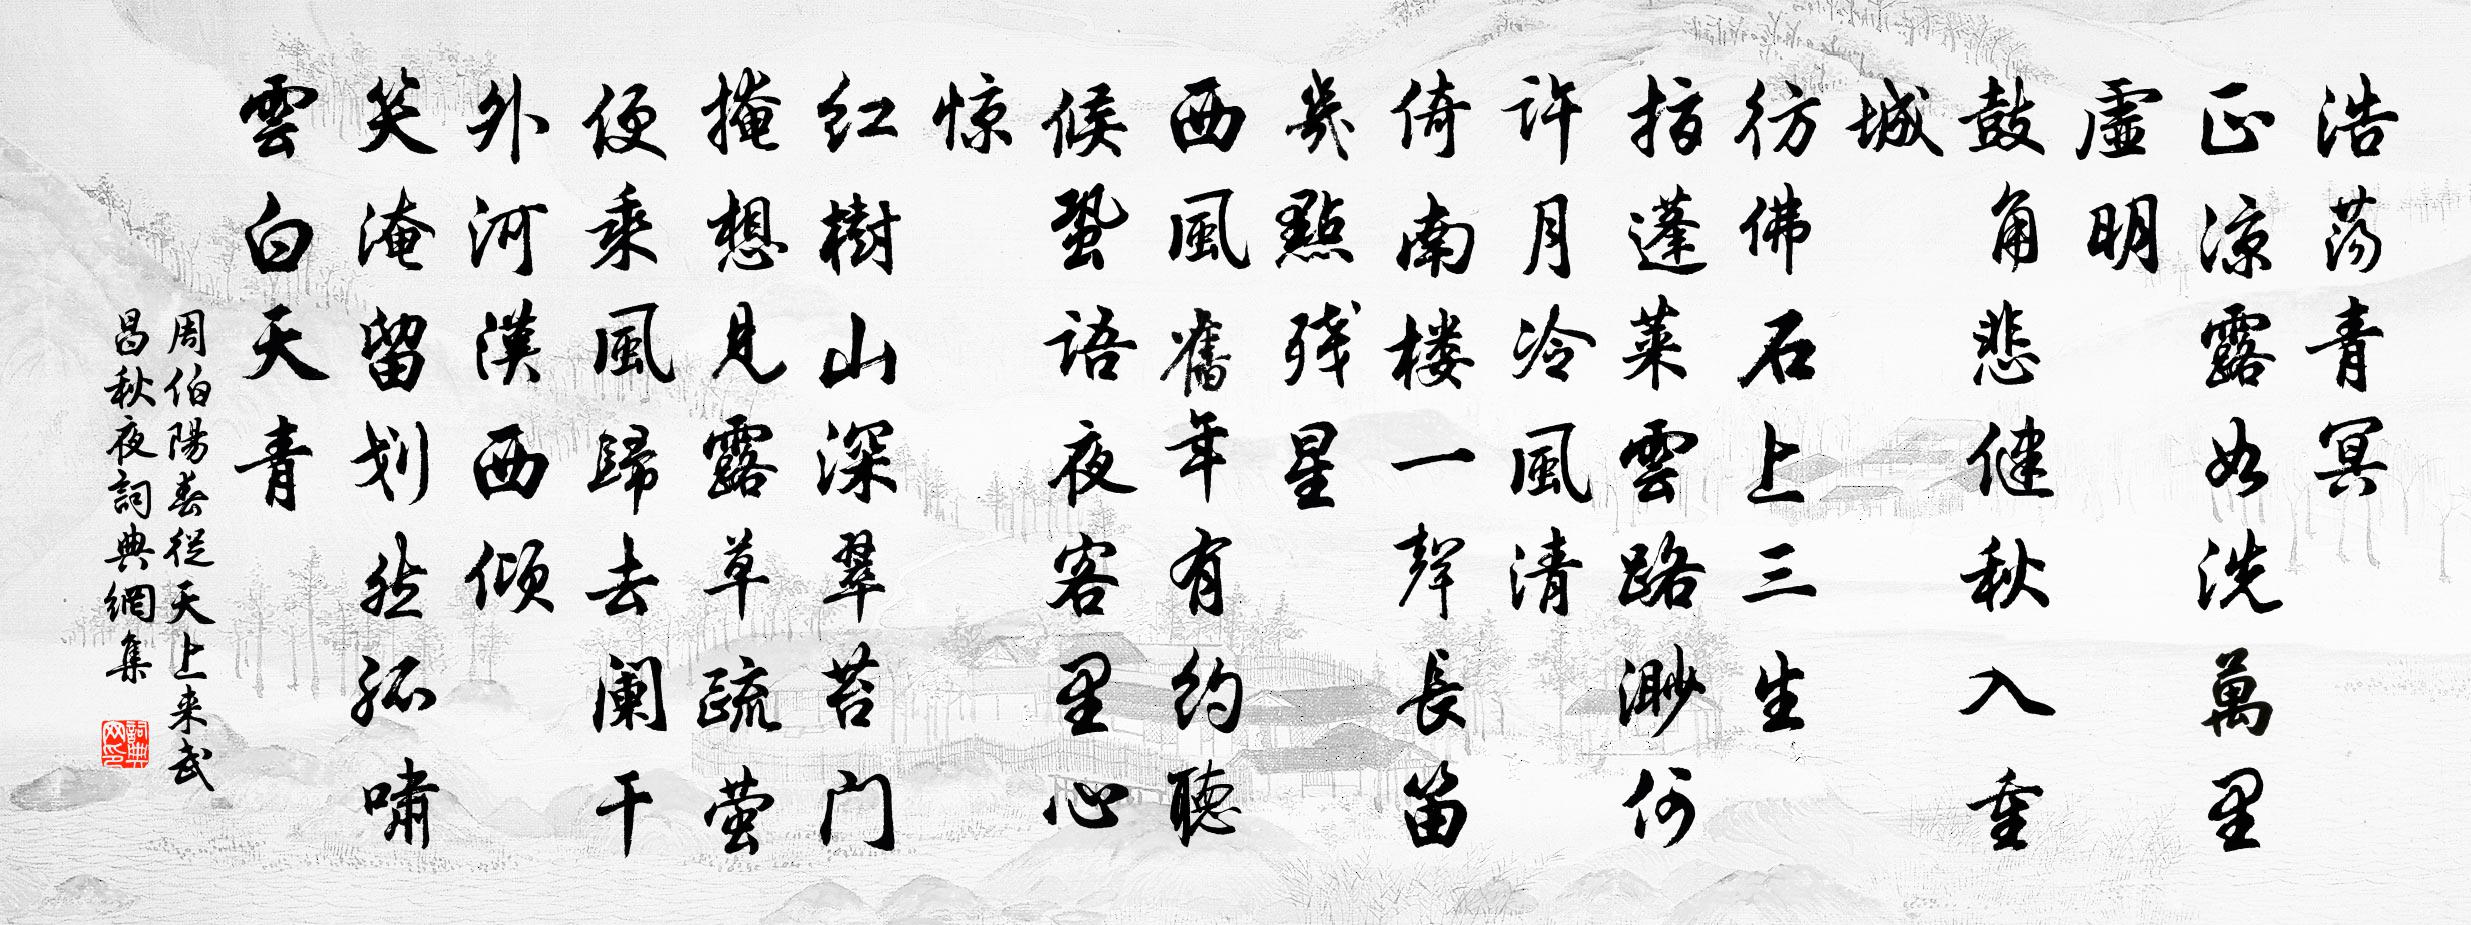 浩荡青冥
正凉露如洗萬里
虚明
鼓角悲健秋入重
城
彷佛石上三生
指蓬莱雲路渺何
许月冷風清
倚南楼一聲長笛
幾點残星
西風舊年有約聽
候蛩語夜客里心
惊
红樹山深翠苔门
掩想見露草疏萤
便乘風歸去阑干
外河漢西倾
笑淹留划然孤嘯
雲白天青
周伯陽春從天上来武
昌秋夜詞典網集
詞典
网印